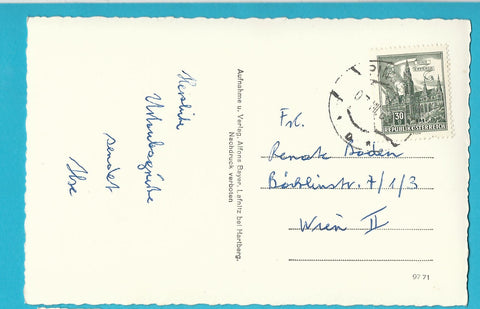 Herzliche
Urlaubsgrüße
sendet
Ilse
Aufnahme u. Verlag Alfons Beyer, Lafnitz bei Hartberg.
Nachdruck verboten
30
REPUBLIK ÖSTERREICH
Frl.
Renate Boden
7/1/3
Wien II
9771